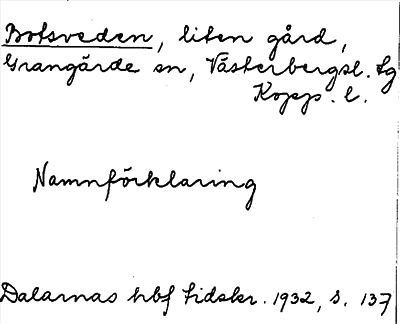 Botsveden, liten gård,
Grangärde sn, Västerbergsl. tg
Kopp. l.
Namnförklaring
Dalarnas hbf tidskr. 1932, s. 137